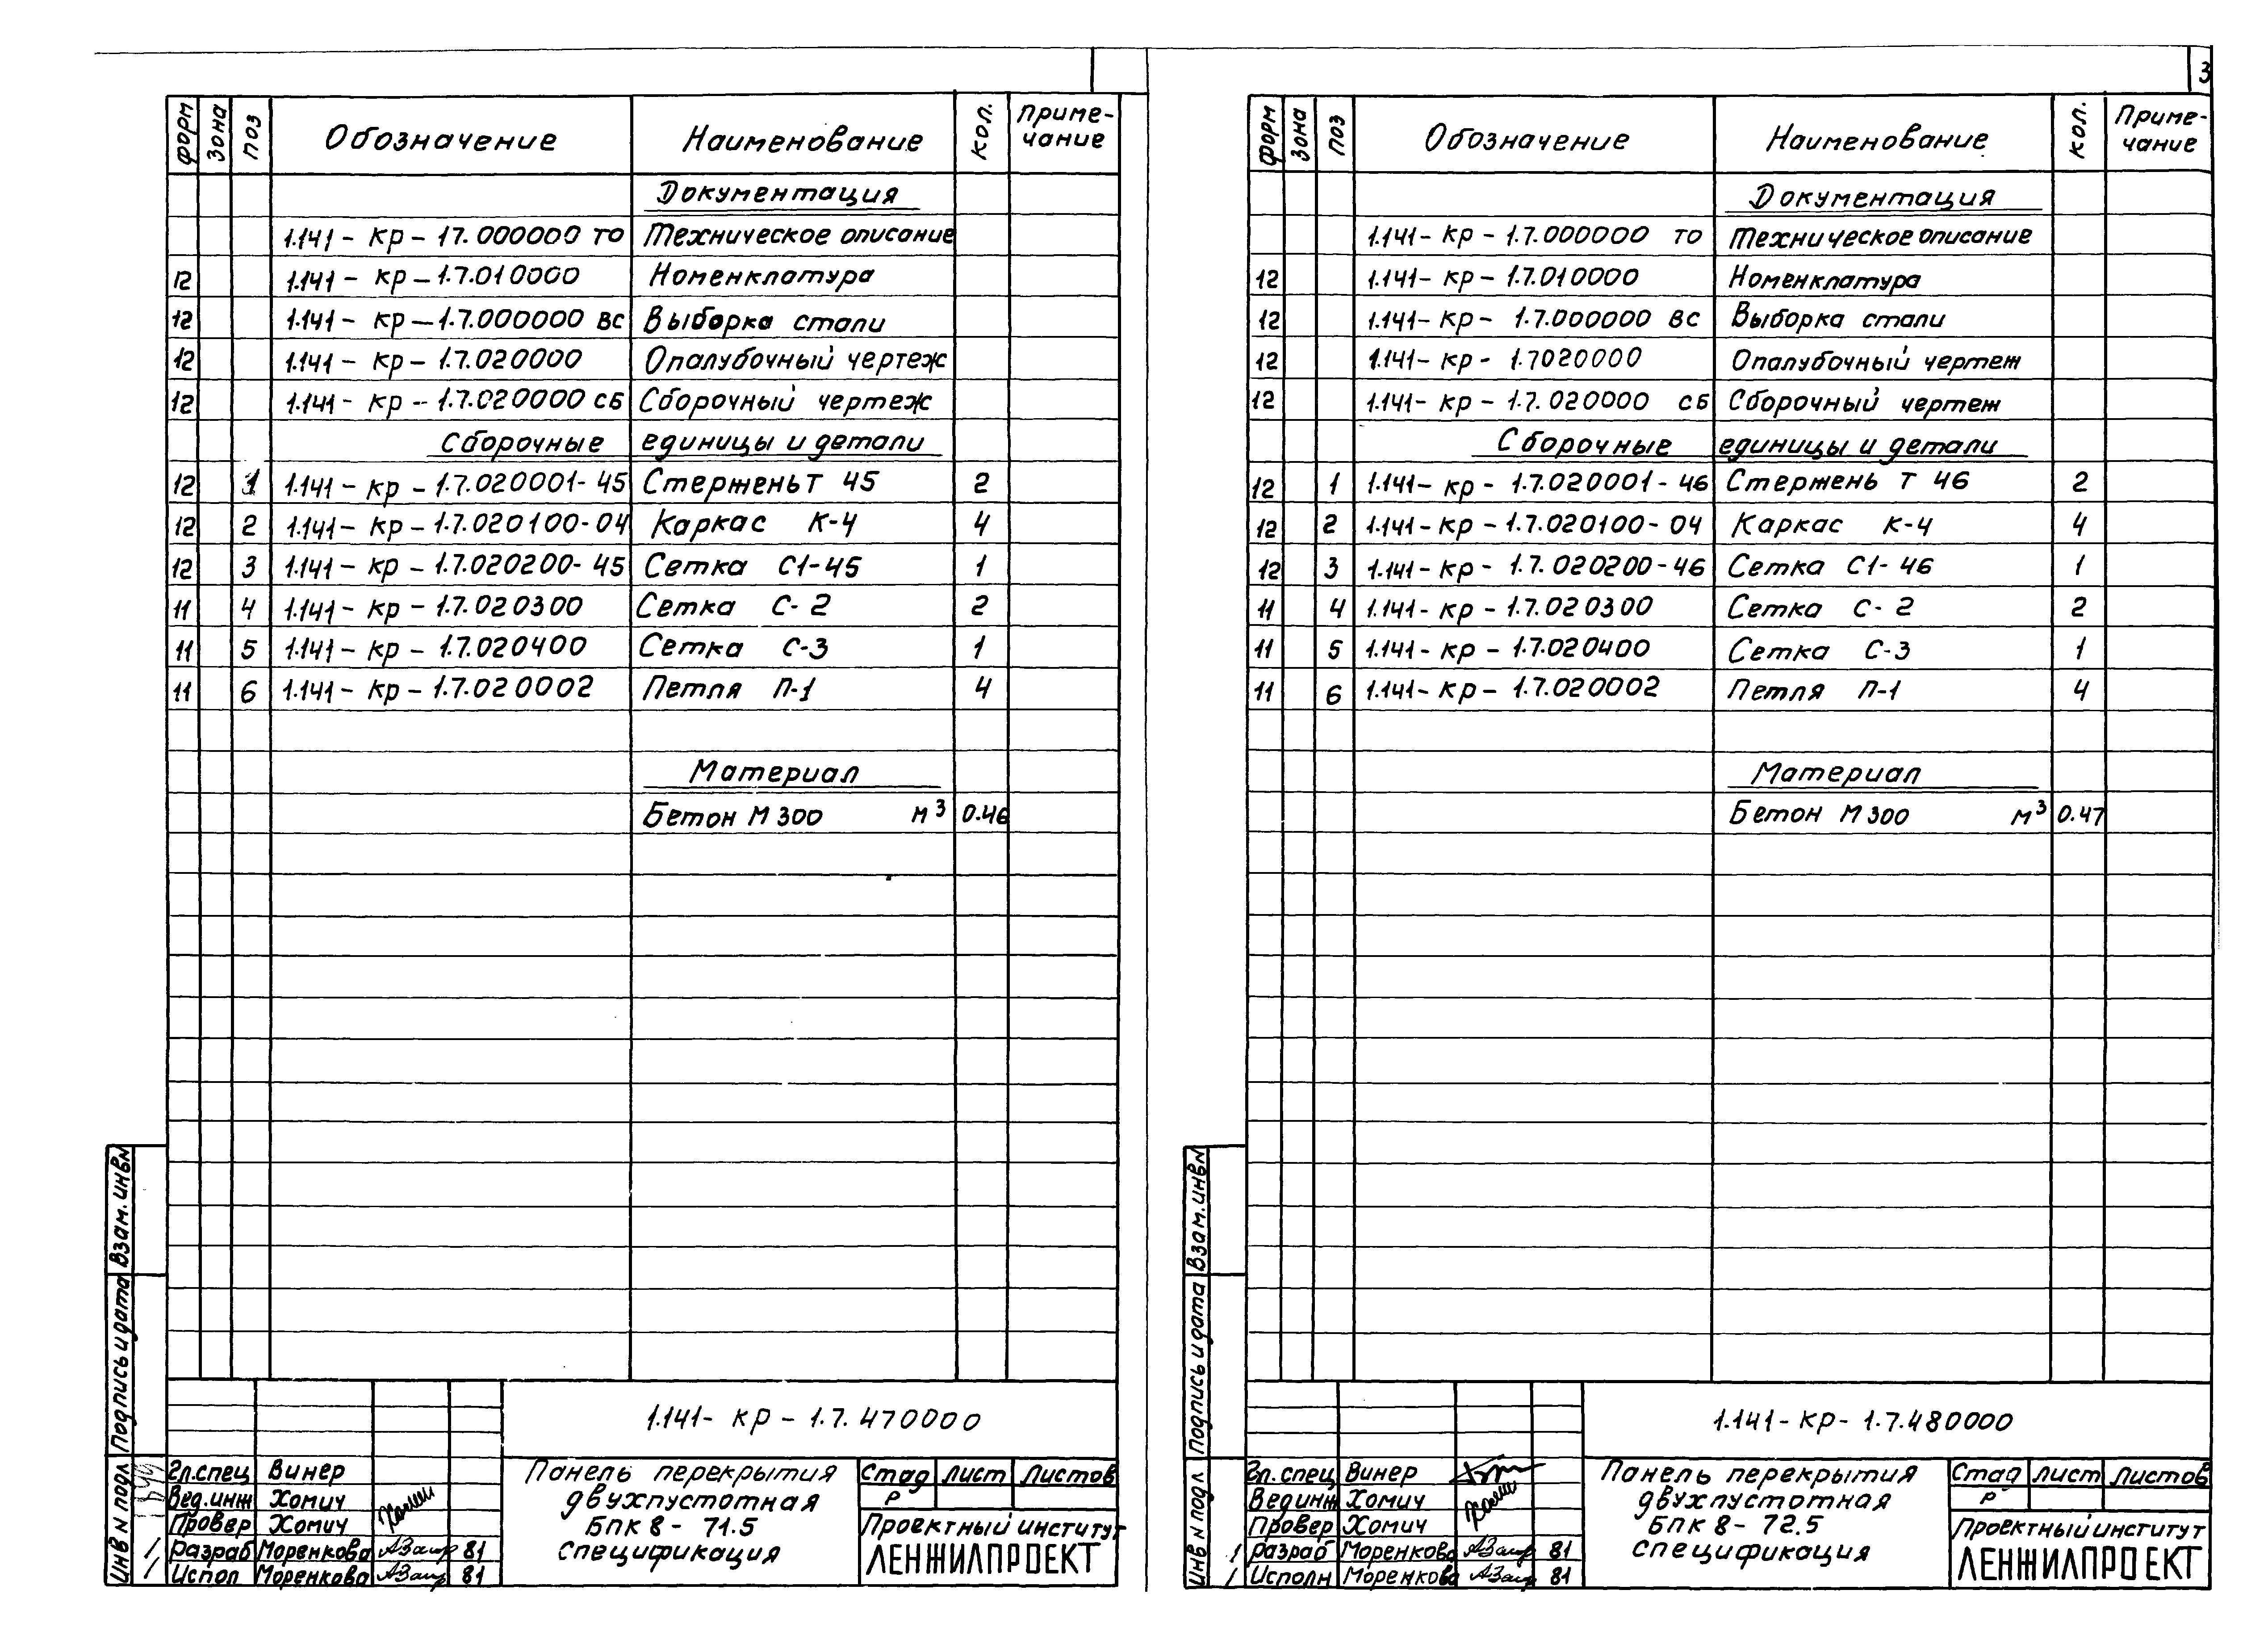 3
Форм Зона Поз Обозначение Наименование Кол. Примечание
Документация
1.141-кр-17.000000 ТО Техническое описание
12 1.141-кр-1.7.010000 Номенклатура
12 1.141-кр-1.7.000000 ВС Выборка стали
12 1.141-кр-1.7.020000 Опалубочный чертеж
12 1.141-кр-1.7.020000 СБ Сборочный чертеж
Сборочные единицы и детали
12 1 1.141-кр-1.7.020001-45 Стержень Т 45 2
12 2 1.141-кр-1.7.020100-04 Каркас К-4 4
12 3 1.141-кр-1.7.020200-45 Сетка С1-45 1
11 4 1.141-кр-1.7.020300 Сетка С-2 2
11 5 1.141-кр-1.7.020400 Сетка С-3 1
11 6 1.141-кр-1.7.020002 Петля П-1 4
Материал
Бетон М 300 м³ 0.46
Взам. инв N
Подпись и дата
Инв N подл
1.141-кр-1.7.470000
Гл.спец Винер
Вед.инж Хомич
Провер Хомич
Разраб Моренкова 81
Испол Моренкова 81
Панель перекрытия
двухпустотная
БПК 8-71.5
спецификация
Стад Лист Листов
Р
Проектный институт
ЛЕНЖИЛПРОЕКТ
Форм Зона Поз Обозначение Наименование Кол. Примечание
Документация
1.141-кр-1.7.000000 ТО Техническое описание
12 1.141-кр-1.7.010000 Номенклатура
12 1.141-кр-1.7.000000 ВС Выборка стали
12 1.141-кр-1.7020000 Опалубочный чертеж
12 1.141-кр-1.7.020000 СБ Сборочный чертеж
Сборочные единицы и детали
12 1 1.141-кр-1.7.020001-46 Стержень Т 46 2
12 2 1.141-кр-1.7.020100-04 Каркас К-4 4
12 3 1.141-кр-1.7.020200-46 Сетка С1-46 1
11 4 1.141-кр-1.7.020300 Сетка С-2 2
11 5 1.141-кр-1.7.020400 Сетка С-3 1
11 6 1.141-кр-1.7.020002 Петля П-1 4
Материал
Бетон М 300 м³ 0.47
Взам. инв N
Подпись и дата
Инв N подл
1.141-кр-1.7.480000
Гл.спец Винер
Вединж Хомич
Провер Хомич
Разраб Моренкова 81
Исполн Моренкова 81
Панель перекрытия
двухпустотная
БПК 8-72.5
спецификация
Стад Лист Листов
Р
Проектный институт
ЛЕНЖИЛПРОЕКТ